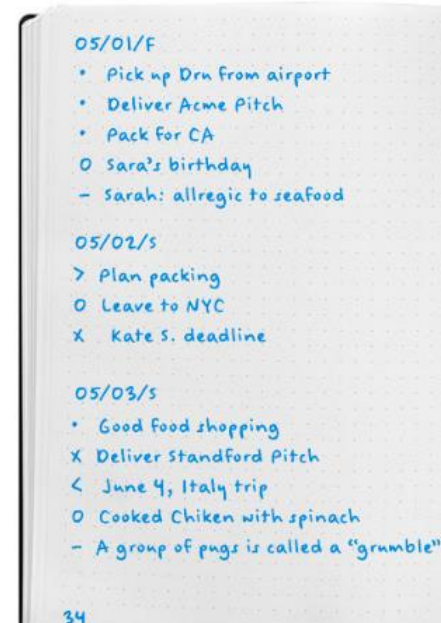 05/01/F
• Pick up Dru from airport
• Deliver Acme Pitch
• Pack for CA
O Sara's birthday
– Sarah: allregic to seafood
05/02/S
> Plan packing
O Leave to NYC
x Kate S. deadline
05/03/S
• Good food shopping
x Deliver Standford Pitch
< June 4, Italy trip
O Cooked Chiken with spinach
– A group of pugs is called a "grumble"
34